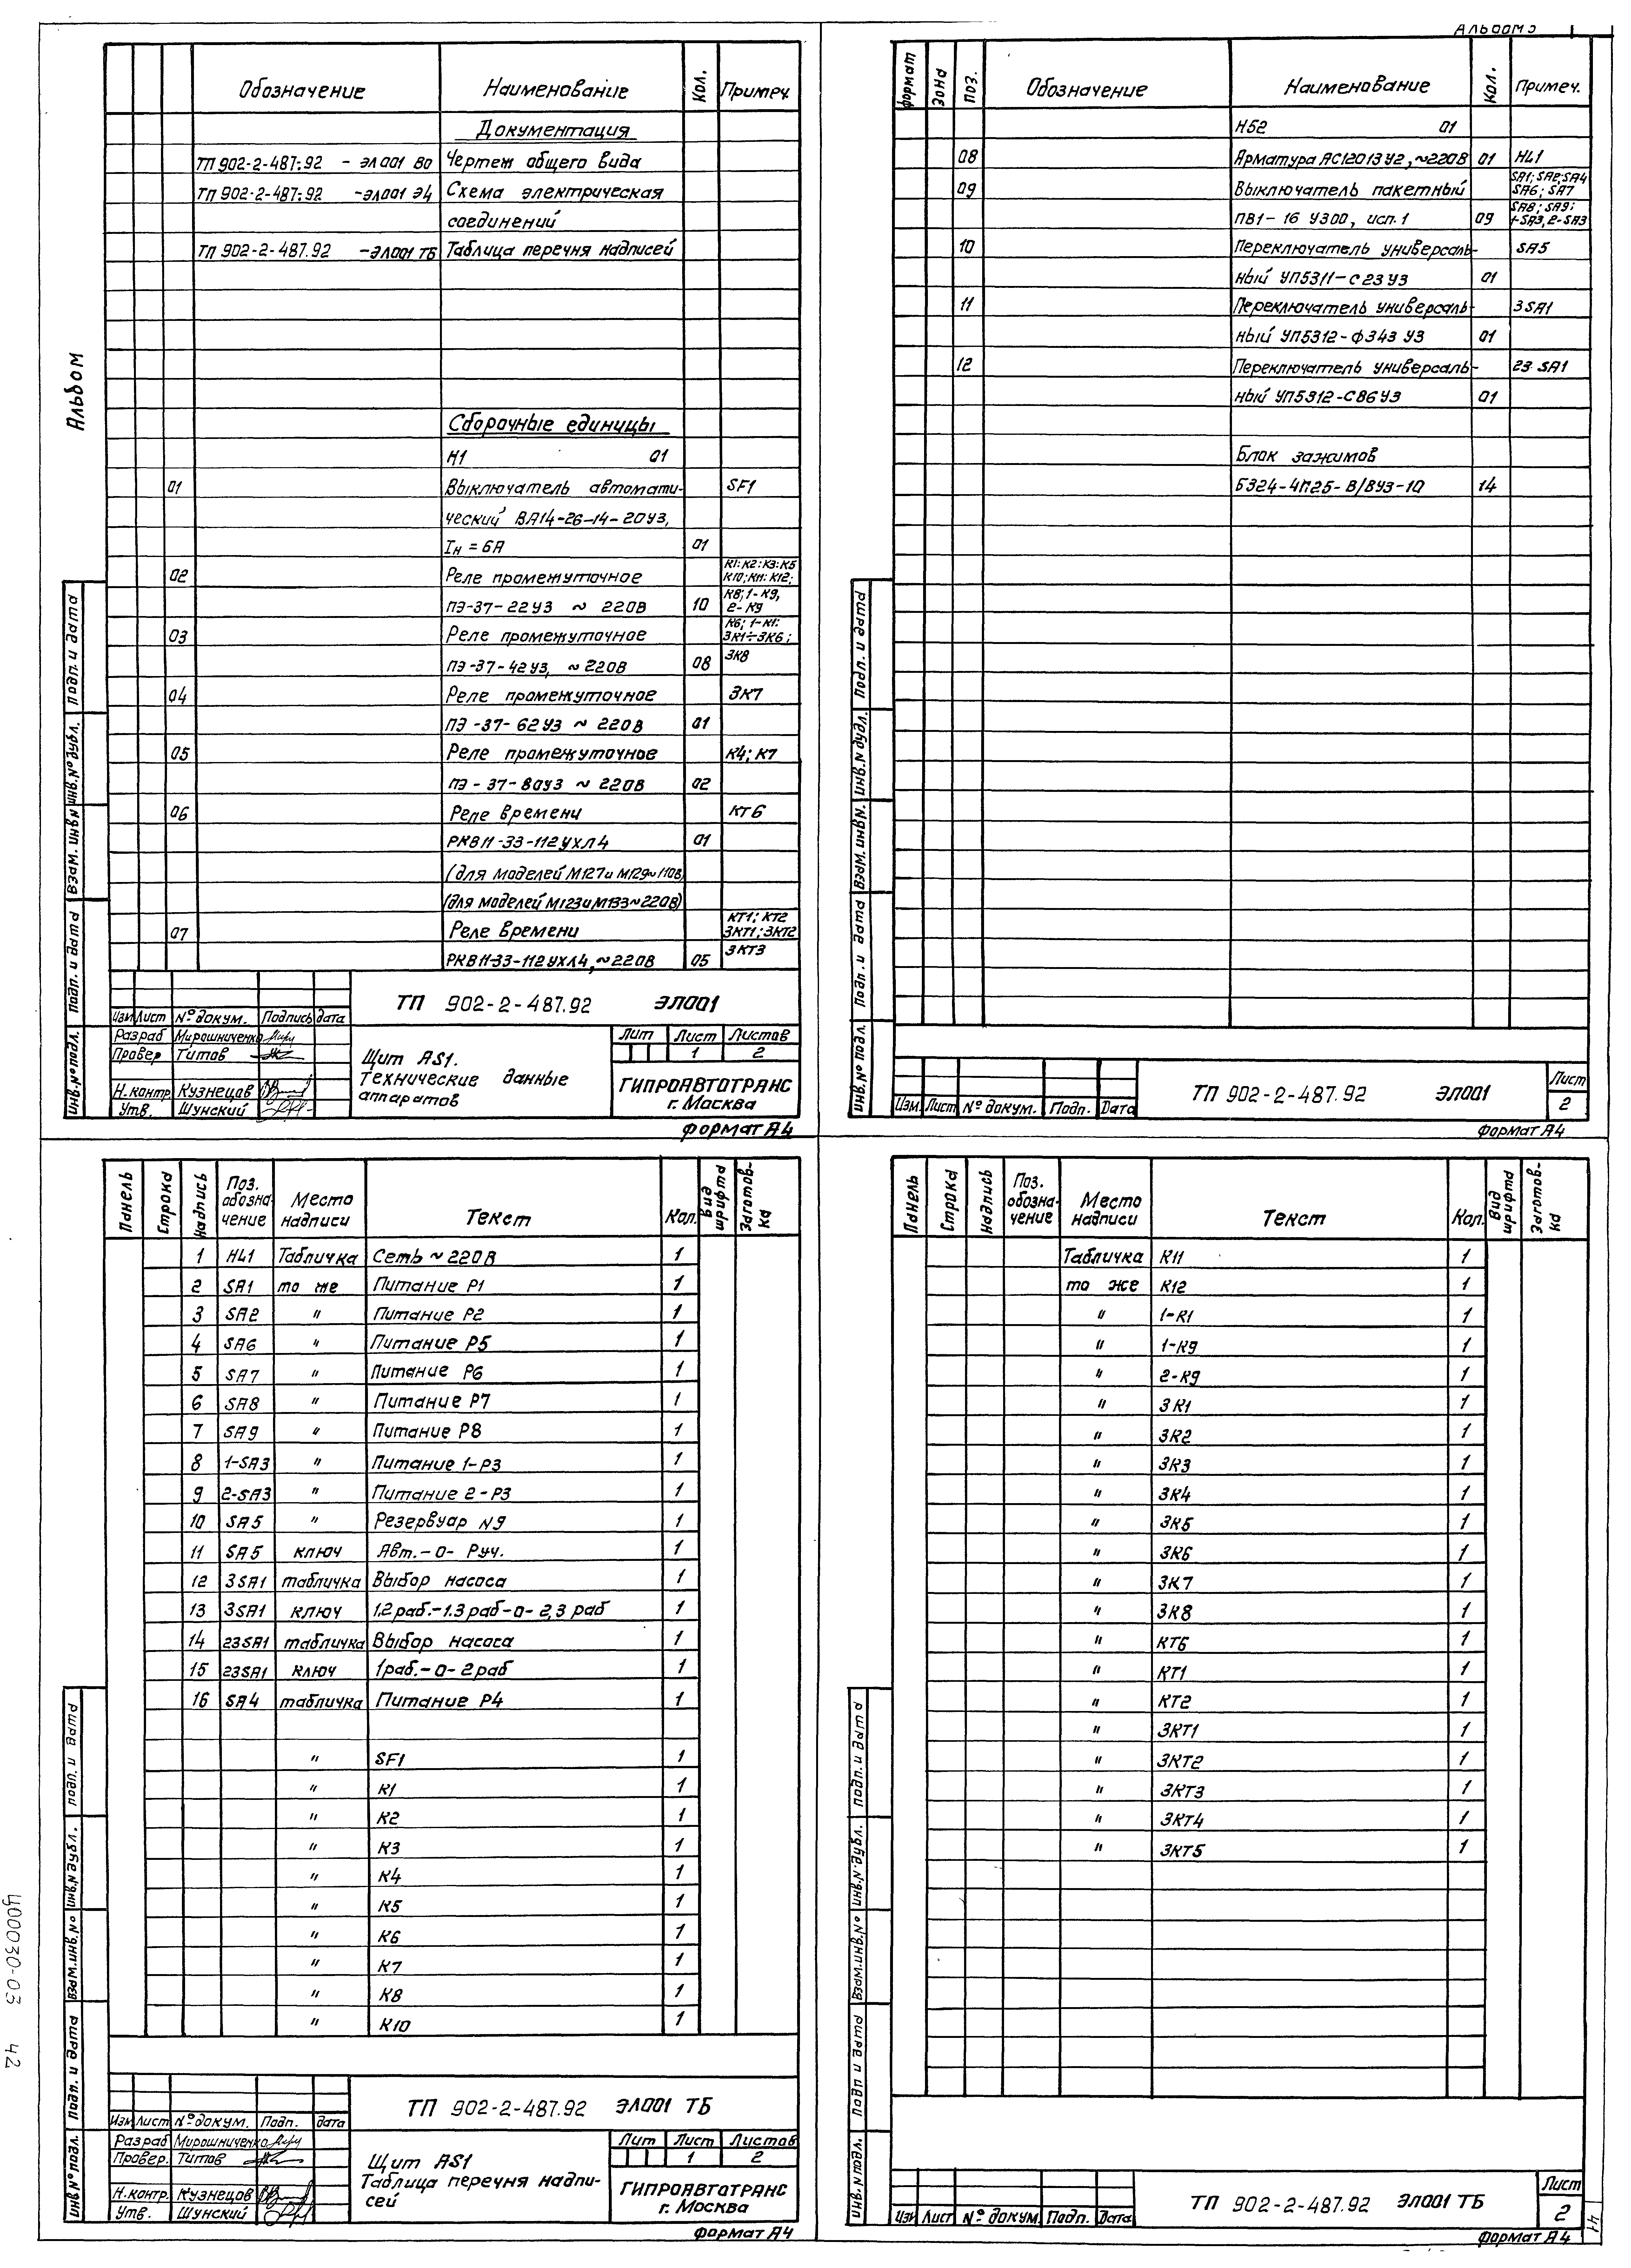 Альбом
Обозначение Наименование Кол. Примеч.
Документация
ТП 902-2-487.92 - ЭЛ001 ВО Чертеж общего вида
ТП 902-2-487.92 - ЭЛ001 Э4 Схема электрическая
соединений
ТП 902-2-487.92 - ЭЛ001 ТБ Таблица перечня надписей
Сборочные единицы
Н1 01
01 Выключатель автомати- SF1
ческий ВА14-26-14-20УЗ,
Iн = 6А 01
02 Реле промежуточное К1; К2; К3; К5
К10; К11; К12;
ПЭ-37-22УЗ ~ 220В 10 К8; 1-К9,
2-К9
03 Реле промежуточное К6; 1-К1;
3К1÷3К6;
ПЭ-37-42УЗ, ~220В 08 3К8
04 Реле промежуточное 3К7
ПЭ-37-62УЗ ~ 220В 01
05 Реле промежуточное К4; К7
ПЭ-37-80УЗ ~ 220В 02
06 Реле времени КТ6
РКВ11-33-112УХЛ4 01
(для моделей М127 и М129~110В)
(для моделей М123 и М133~220В)
07 Реле времени КТ1; КТ2
3КТ1; 3КТ2
РКВ11-33-112УХЛ4, ~220В 05 3КТ3
ТП 902-2-487.92 ЭЛ001
Изм Лист № докум. Подпись дата
Разраб Мирошниченко
Провер Титов
Н.контр. Кузнецов
Утв. Шунский
Щит AS1.
Технические данные
аппаратов
Лит Лист Листов
1 2
ГИПРОАВТОТРАНС
г. Москва
Формат А4
Подп. и дата
Инв.№ дубл.
Взам. инв №
Подп. и дата
Инв.№ подл.
Альбом 3
Формат Зона Поз. Обозначение Наименование Кол. Примеч.
Н52 01
08 Арматура АС12013У2, ~220В 01 HL1
09 Выключатель пакетный SA1; SA2; SA4
SA6; SA7
ПВ1-16 У300, исп.1 09 SA8; SA9;
1-SA3, 2-SA3
10 Переключатель универсаль- SA5
ный УП5311-С23УЗ 01
11 Переключатель универсаль- 3SA1
ный УП5312-Ф343 УЗ 01
12 Переключатель универсаль- 23 SA1
ный УП5312-С86УЗ 01
Блок зажимов
БЗ24-4П25-В/ВУЗ-10 14
ТП 902-2-487.92 ЭЛ001
Изм. Лист № докум. Подп. Дата
Лист
2
Формат А4
Подп. и дата
Инв.№ дубл.
Взам. инв№.
Подп. и дата
Инв.№ подл.
Панель Строка Надпись Поз. обозна-чение Место надписи Текст Кол. Вид шрифта Заготов-ка
1 HL1 Табличка Сеть ~ 220В 1
2 SA1 то же Питание Р1 1
3 SA2 " Питание Р2 1
4 SA6 " Питание Р5 1
5 SA7 " Питание Р6 1
6 SA8 " Питание Р7 1
7 SA9 " Питание Р8 1
8 1-SA3 " Питание 1-Р3 1
9 2-SA3 " Питание 2-Р3 1
10 SA5 " Резервуар N9 1
11 SA5 ключ Авт.-0- Руч. 1
12 3SA1 табличка Выбор насоса 1
13 3SA1 ключ 1.2 раб.-1.3 раб-0-2,3 раб 1
14 23SA1 табличка Выбор насоса 1
15 23SA1 ключ 1раб.-0-2раб 1
16 SA4 табличка Питание Р4 1
" SF1 1
" К1 1
" К2 1
" К3 1
" К4 1
" К5 1
" К6 1
" К7 1
" К8 1
" К10 1
ТП 902-2-487.92 ЭЛ001 ТБ
Изм Лист № докум. Подп. дата
Разраб Мирошниченко
Провер. Титов
Н.контр. Кузнецов
Утв. Шунский
Щит AS1
Таблица перечня надпи-
сей
Лит Лист Листов
1 2
ГИПРОАВТОТРАНС
г. Москва
Формат А4
Подп. и дата
Инв.N дубл.
Взам.инв.№
Подп. и дата
Инв № подл.
Ц00030-03 42
Панель Строка Надпись Поз. обозна-чение Место надписи Текст Кол. Вид шрифта Заготов-ка
Табличка К11 1
то же К12 1
" 1-К1 1
" 1-К9 1
" 2-К9 1
" 3К1 1
" 3К2 1
" 3К3 1
" 3К4 1
" 3К5 1
" 3К6 1
" 3К7 1
" 3К8 1
" КТ6 1
" КТ1 1
" КТ2 1
" 3КТ1 1
" 3КТ2 1
" 3КТ3 1
" 3КТ4 1
" 3КТ5 1
ТП 902-2-487.92 ЭЛ001 ТБ
Изм Лист № докум. Подп. Дата
Лист
2
Формат А4
41
Подп. и дата
Инв.N дубл.
Взам.инв.№
Подп и дата
Инв.N подл.